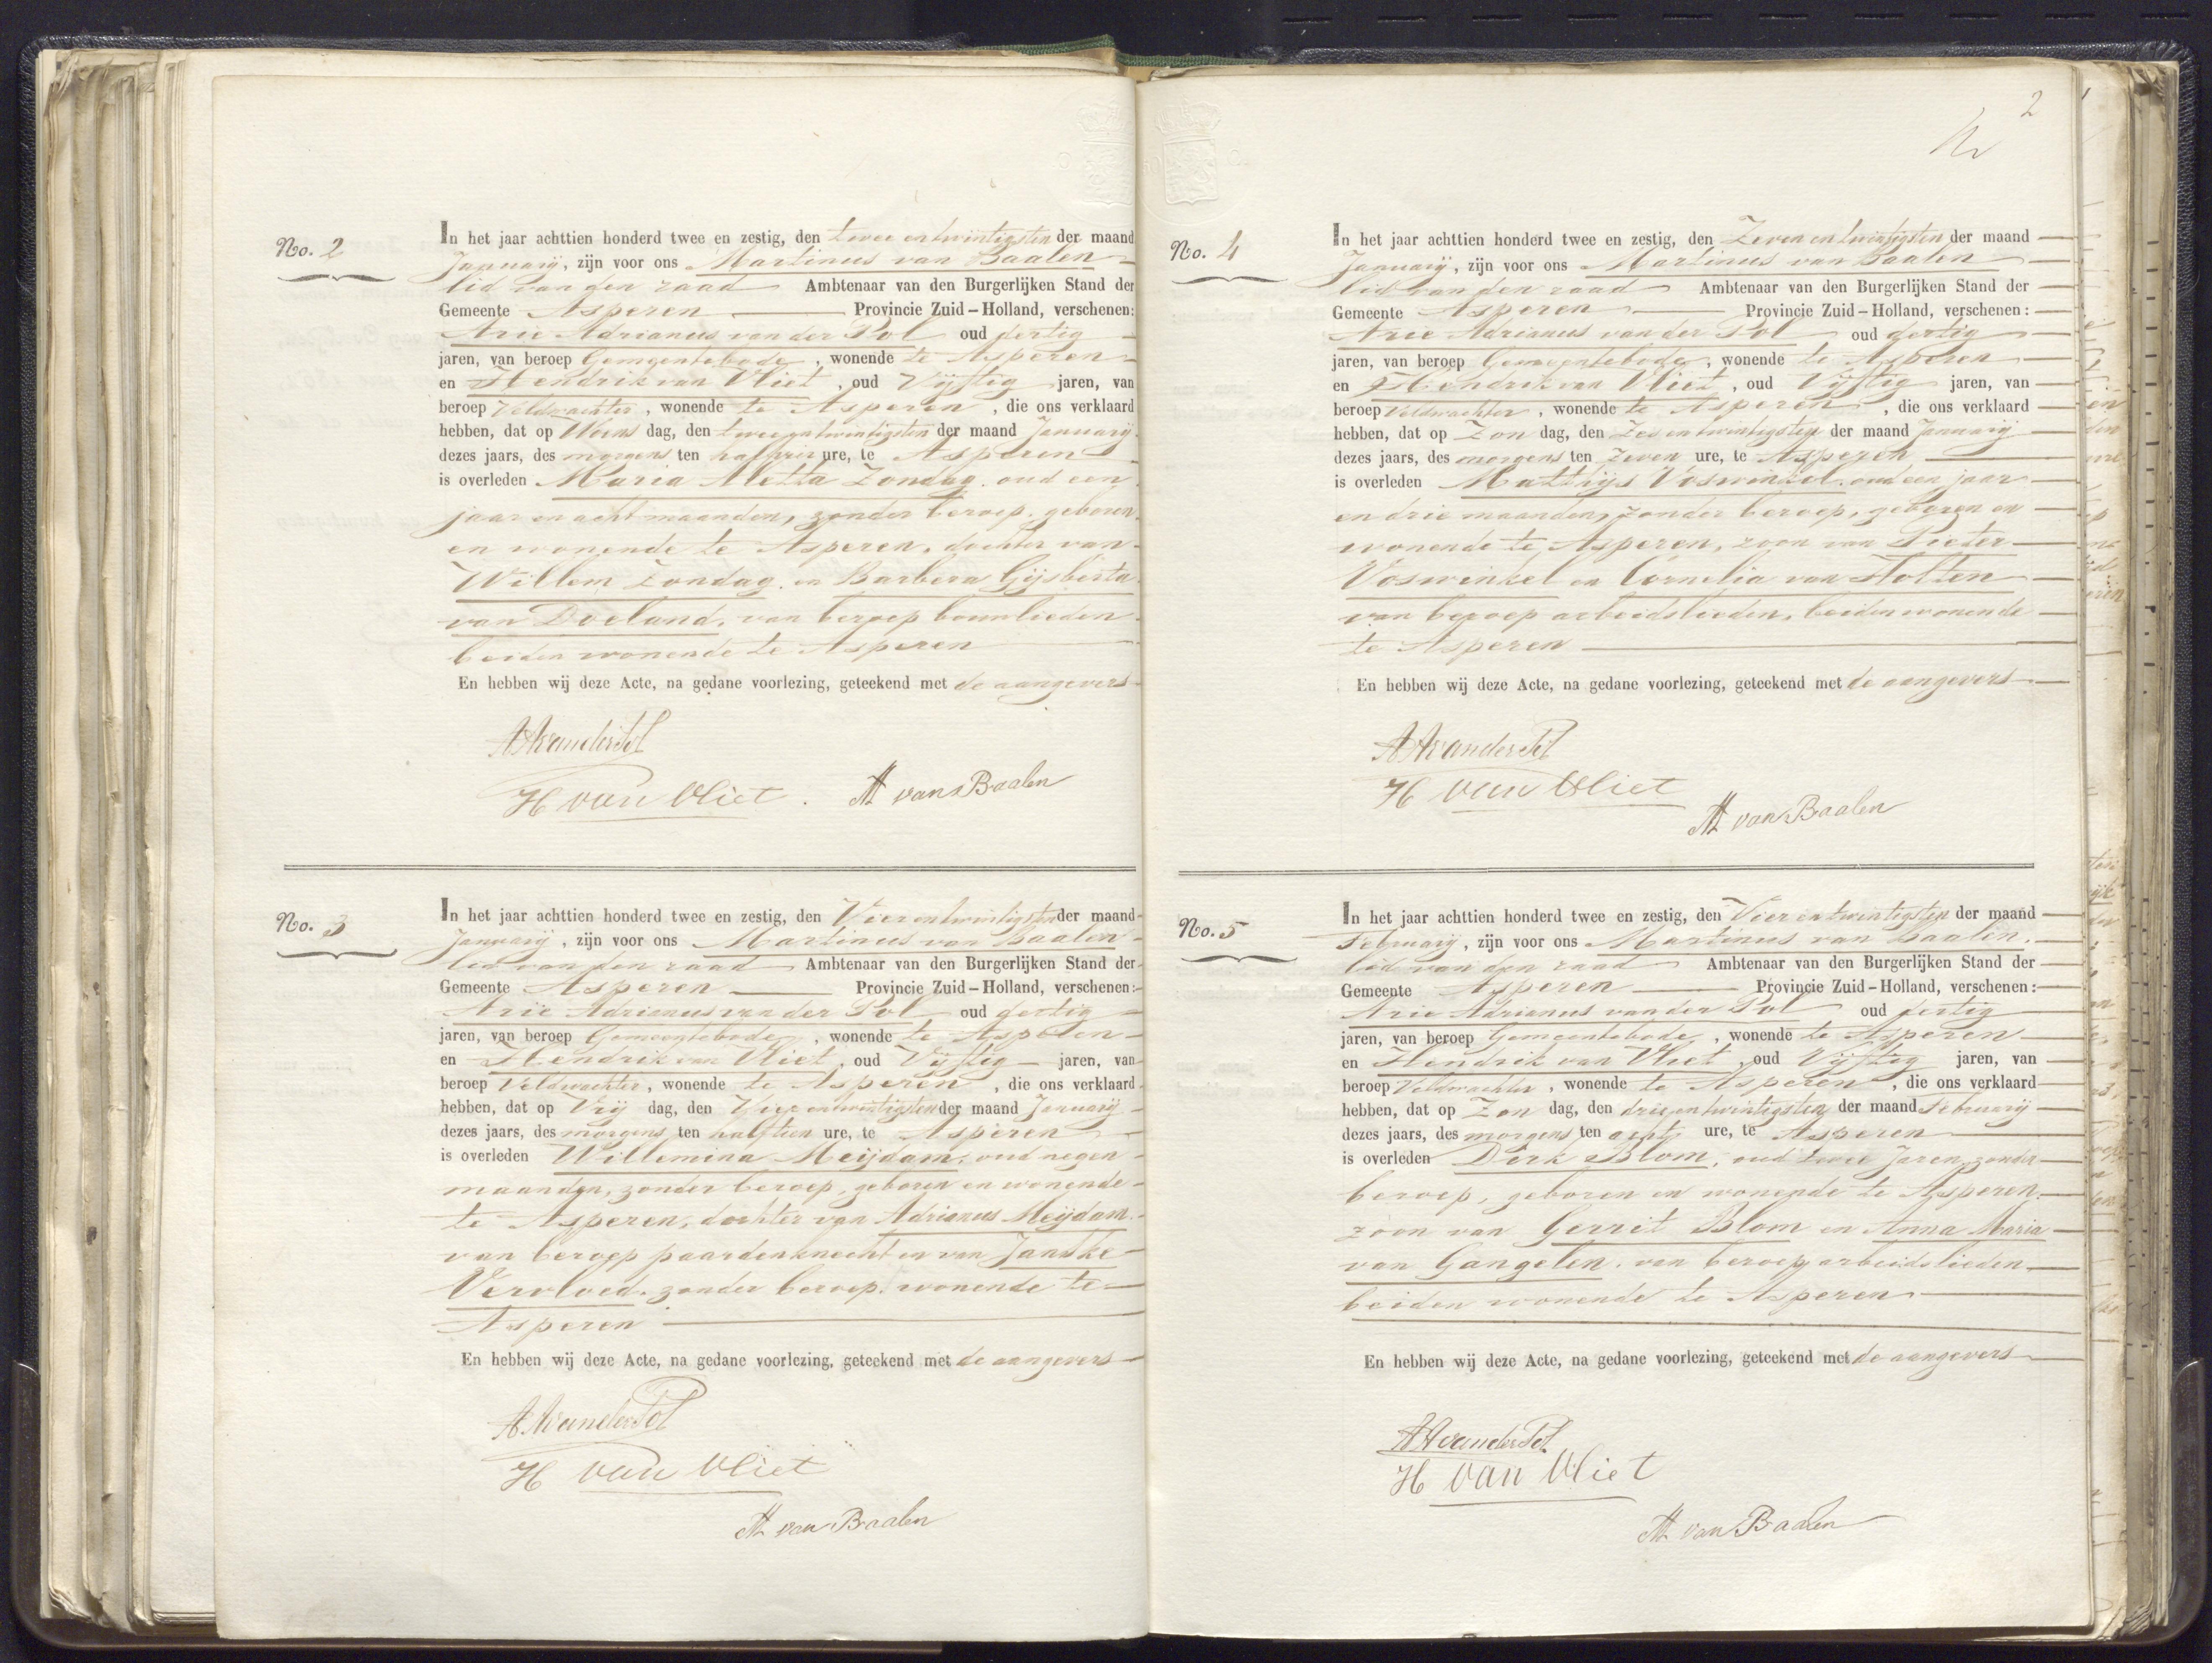 No. 2
In het jaar achttien honderd twee en zestig, den twee en twintigsten der maand
Januarij, zijn voor ons Martinus van Baalen
lid van den raad Ambtenaar van den Burgerlijken Stand der
Gemeente Asperen Provincie Zuid-Holland, verschenen:
Arie Adrianus van der Pol oud dertig
jaren, van beroep Gemeentebode, wonende te Asperen
en Hendrik van Vliet, oud Vijftig jaren, van
beroep Veldwachter, wonende te Asperen, die ons verklaard
hebben, dat op Woens dag, den twee en twintigsten der maand Januarij
dezes jaars, des morgens ten half vier ure, te Asperen
is overleden Maria Metta Zondag, oud een
jaar en acht maanden, zonder beroep, geboren
en wonende te Asperen, dochter van
Willem Zondag en Barbera Gijsberta
van Doeland, van beroep bouwlieden
beiden wonende te Asperen
En hebben wij deze Acte, na gedane voorlezing, geteekend met de aangevers
AAvanderPol
H van Vliet. M van Baalen
No. 3
In het jaar achttien honderd twee en zestig, den Vier en twintigsten der maand
Januarij, zijn voor ons Martinus van Baalen
lid van den raad Ambtenaar van den Burgerlijken Stand der
Gemeente Asperen Provincie Zuid-Holland, verschenen:
Arie Adrianus van der Pol oud dertig
jaren, van beroep Gemeentebode, wonende te Asperen
en Hendrik van Vliet, oud Vijftig jaren, van
beroep Veldwachter, wonende te Asperen, die ons verklaard
hebben, dat op Vrij dag, den Vier en twintigsten der maand Januarij
dezes jaars, des morgens ten half tien ure, te Asperen
is overleden Willemina Meijdam, oud negen
maanden, zonder beroep, geboren en wonende
te Asperen, dochter van Adrianus Meijdam
van beroep paardenknecht en van Janske
Vervloed, zonder beroep, wonende te
Asperen
En hebben wij deze Acte, na gedane voorlezing, geteekend met de aangevers
AAvanderPol
H van Vliet
M van Baalen
2
No. 4
In het jaar achttien honderd twee en zestig, den Zeven en twintigsten der maand
Januarij, zijn voor ons Martinus van Baalen
lid van den raad Ambtenaar van den Burgerlijken Stand der
Gemeente Asperen Provincie Zuid-Holland, verschenen:
Arie Adrianus van der Pol oud dertig
jaren, van beroep Gemeentebode, wonende te Asperen
en Hendrik van Vliet, oud Vijftig jaren, van
beroep Veldwachter, wonende te Asperen, die ons verklaard
hebben, dat op Zon dag, den Zes en twintigsten der maand Januarij
dezes jaars, des morgens ten zeven ure, te Asperen
is overleden Mattijs Voswinkel, oud een jaar
en drie maanden, zonder beroep, geboren en
wonende te Asperen, zoon van Pieter
Voswinkel en Cornelia van Holten
van beroep arbeidslieden, beiden wonende
te Asperen
En hebben wij deze Acte, na gedane voorlezing, geteekend met de aangevers
AAvanderPol
H van Vliet
M van Baalen
No. 5
In het jaar achttien honderd twee en zestig, den Vier en twintigsten der maand
Februarij, zijn voor ons Martinus van Baalen.
lid van den raad Ambtenaar van den Burgerlijken Stand der
Gemeente Asperen Provincie Zuid-Holland, verschenen:
Arie Adrianus van der Pol oud dertig
jaren, van beroep Gemeentebode, wonende te Asperen
en Hendrik van Vliet, oud Vijftig jaren, van
beroep Veldwachter, wonende te Asperen, die ons verklaard
hebben, dat op Zon dag, den drie en twintigsten der maand Februarij
dezes jaars, des morgens ten acht ure, te Asperen
is overleden Dirk Blom, oud twee Jaren, zonder
beroep, geboren en wonende te Asperen,
zoon van Gerrit Blom en Anna Maria
van Gangelen, van beroep arbeidslieden
beiden wonende te Asperen
En hebben wij deze Acte, na gedane voorlezing, geteekend met de aangevers
AAvanderPol
H van Vliet
M van Baalen